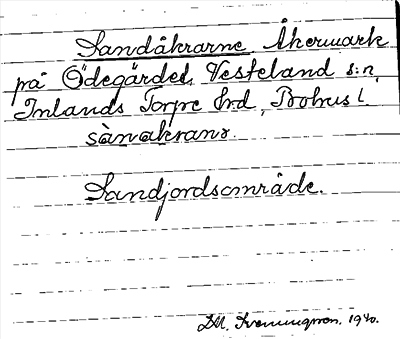 Sandåkrarne Åkermark
på Ödegärdet, Vesteland s:n,
Inlands Torpe hrd, Bohus l.
sànakranɜ.
Sandjordsområde.
1940.